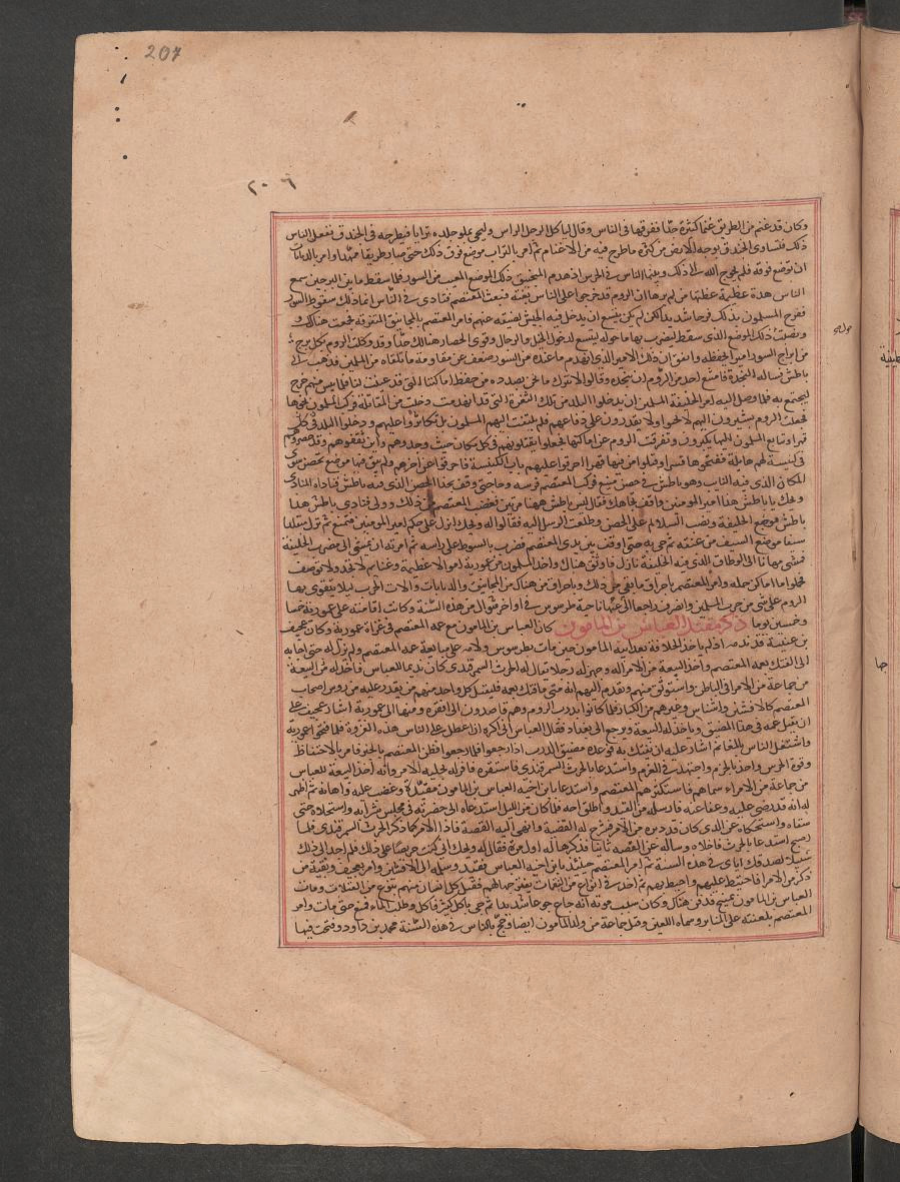 207
٢٠٦
وكان قد غنم من الطريق غنما كثيرة جدا ففرقها في الناس وقال لياكل الرجل الراس وليجي بملو جلده ترابا فيطرحه في الخندق ففعل الناس
ذلك فتساوى الخندق بوجه الارض من كثرة ما طرح فيه من الاغنام ثم امر بالتراب فوضع فوق ذلك حتى صار طريقا ممهدا وامر بالدبابات
ان توضع فوقه فلم يحوج الله الى ذلك وبينما الناس في الحرس اذ هدم المنجنيق ذلك الموضع المعيب من السور فلما سقط ما بين البرجين سمع
الناس هدة عظيمة فظنها من لم يرها ان الروم قد خرجوا على الناس بغتة فبعث المعتصم فنادى في الناس انما ذلك سقوط السور
ففرح المسلمون بذلك فرحا شديدا لكن لم يكن يتسع ان يدخل فيه الجيش لضيقه عنهم فامر المعتصم بالمجانيق المتفرقة فجمعت هنالك
ونصبت ذلك الموضع الذي سقط ليضرب بها ما حوله ليتسع لدخول الخيل والرجال وقوى الحصار هنالك جدا وقد وكلت الروم بكل برج
من ابراج السور اميرا لحفظه واتفق ان ذلك الامير الذي انهدم ما عنده من السور ضعف عن مقاومة ما تلقاه من المسلمين فذهب الى
ياطش فساله النجدة فامتنع احد من الروم ان ينجده وقالوا لا نترك ما نحن بصدده من حفظ اماكننا التي قد عينت لنا فلما يس منهم خرج
ليجتمع به فلما وصل اليه امر الخليفة المسلمين ان يدخلوا البلد من تلك الثغرة التي قد انهدمت وخلت من المقاتلة فركب المسلمون نحوها
فجعلت الروم يشيرون اليهم لا تجوا ولا يقدرون على دفاعهم فلم يلتفت اليهم المسلمون بل تكاثروا عليهم ودخلوا البلد
قهرا وتتابع المسلمون اليها يكبرون وتفرقت الروم عن اماكنها فجعلوا يقتلونهم في كل مكان حيث وجدوهم واين ثقفوهم وقد حصروهم
في كنيسة لهم هايلة ففتحوها قسرا وقتلوا من فيها قهرا واحرقوا عليهم باب الكنيسة فاحرقوا عن اخرهم ولم يبق فيها موضع محصن سوى
المكان الذي فيه النايب وهو ياطش في حصن منيع فركب المعتصم فرسه وجا حتى وقف بحذا الحصن الذي فيه ياطش فناداه المنادي
ويحك يا ياطش هذا امير المومنين واقف تجاهك فقال ليس ياطش ههنا مرتين فغضب المعتصم من ذلك وولى فنادى ياطش هذا
ياطش فرجع الخليفة ونصب السلالم على الحصن وطلعت الرسل اليه فقالوا له ويحك انزل على حكم امير المومنين فتمنع ثم نزل متقلدا
سيفا فوضع السيف من عنقه ثم جي به حتى اوقف بين يدي المعتصم فضرب بالسوط على راسه ثم امر به ان يمشي الى مضرب الخليفة
فمشى مهانا الى الوطاق الذي فيه الخليفة نازل فاوثق هناك واخذ المسلمون من عمورية اموالا عظيمة وغنايم لا تحد ولا توصف
فحملوا ما امكن حمله وامر المعتصم باحراق ما بقي من ذلك وباحراق من هناك من المجانيق والدبابات والات الحرب ليلا يتقوى بها
الروم على شي من حرب المسلمين وانصرف راجعا الى ناحية طرسوس في اواخر شوال من هذه السنة وكانت اقامته على عمورية خمسا
وخمسين يوما ذكر مقتل العباس بن المامون كان العباس بن المامون مع عمه المعتصم في غزاة عمورية وكان عجيف
بن عنبسة قد ندمه اذ لم ياخذ الخلافة بعد ابيه المامون حين مات بطرسوس ولامه على مبايعة عمه المعتصم ولم يزل به حتى اجابه
الى الفتك بعمه المعتصم واخذ البيعة من الامرا له وجهز له رجلا يقال له الحرث السمرقندي كان نديما للعباس فاخذ له من البيعة
من جماعة من الامرا في الباطن واستوثق منهم وتقدم اليهم انه متى ما فتك بعمه فليقتل كل واحد منهم من يقدر عليه من روس اصحاب
المعتصم كالافشين واشناس وغيرهم من الكبار فلما كانوا بدرب الروم وهم قاصدون الى انقرة ومنها الى عمورية اشار عجيف على
ان يقتل عمه في هذا المضيق وياخذ له البيعة ويرجع الى بغداد فقال العباس اني اكره ان اعطل على الناس هذه الغزوة فلما فتحوا عمورية
واشتغل الناس بالمغانم اشار عليه ان يفتك به فوعده مضيق الدرب اذا رجعوا فلما رجعوا فطن المعتصم بالخبر فامر بالاحتفاظ
وقوة الحرس واخذ بالحزم واجتهد في العزم واستدعا بالحرث السمرقندي فاستقره فاقر له بجلية الامر وانه اخذ البيعة للعباس
من جماعة من الامراء سماهم فاستكثرهم المعتصم واستدعا بابن اخيه العباس بن المامون فقيده وغضب عليه واهانه ثم اظهر
له انه قد رضي عليه وعفا عنه فارسله من القيد واطلق سراحه فلما كان من الليل استدعاه الى حضرته في مجلس شرابه واستخلاه حتى
سقاه واستحكاه عن الذي كان قد دبره من الامر فشرح له القضية وانهى اليه القصة فاذا الامر كما ذكر الحرث السمرقندي فلما
اصبح استدعا بالحرث فاخلاه وساله عن القصه ثانيا فذكرها له اول مرة فقال له ويحك اني كنت حريصا على ذلك فلم اجد الى ذلك
سبيلا لصدقك اياي في هذه السنة ثم امر المعتصم حينئذ بابن اخيه العباس فقيد وسلم الى الافشين وامر بعجيف وبقية من
ذكر من الامرا فاحتيط عليهم واحيط بهم ثم اخذ في انواع من النقمات يقترحها لهم فقتل كل انسان منهم بنوع من القتلات ومات
العباس بن المامون بمنبج فدفن هناك وكان سبب موته انه جاع جوعا شديدا ثم جي باكل كثير فاكل وطلب الماء فمنع حتى مات وامر
المعتصم بلعنته على المنابر وسماه اللعين وقتل جماعة من ولد المامون ايضا وحج بالناس في هذه السنة محمد بن داود وفتحت فيها